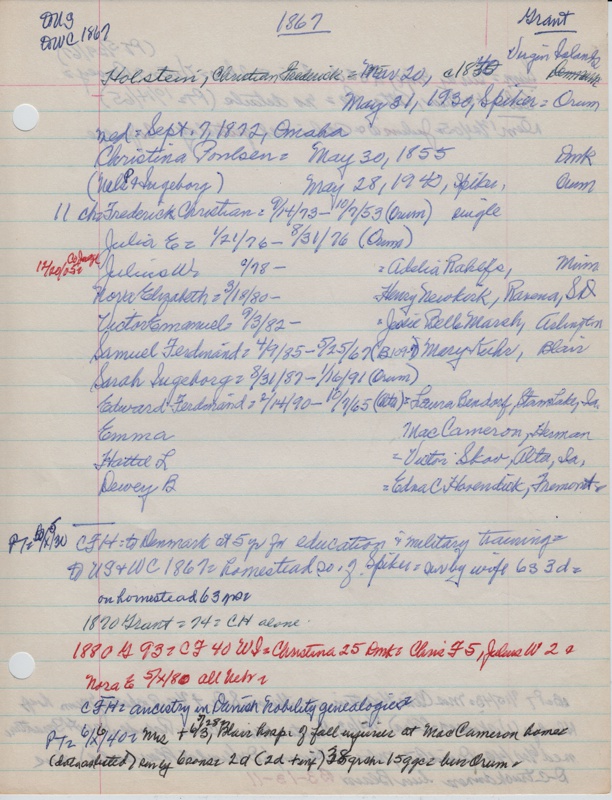 DUS
DWC 1867
1867
Grant
Virgin Islands
Holstein, Christian Frederick = Mar 20, c1835 Denmark
May 31, 1930, Spiker = Orum
med = Sept. 7, 1872, Omaha
Christina Poulsen = May 30, 1855 Dmk
(Nels P & Ingeborg) May 28, 1940, Spiker, Orum
11 ch = Frederick Christian = 9/14/73 - 10/7/53 (Orum) single
Julia E = 1/21/76 - 8/31/76 (Orum)
12/20/05 = Julius W. 2/78 - = Adelia Rahlfs, Minn
Nora Elizabeth = 3/19/80 - Henry Newkirk, Ravena, SD
Victor Emanuel = 9/3/82 - = Josie Belle Marsh, Arlington
Samuel Ferdinand = 4/9/85 - 5/25/67 Mary Kuhr, Blair
Sarah Ingeborg = 8/31/87 - 1/16/91 (Orum)
Edward Ferdinand = 2/14/90 - 10/7/65 (Alta) = Laura Bendorf, Storm Lake, Ia,
Emma Mac Cameron, Herman
Hattie L = Victor Skov, Alta, Ia,
Dewey B = Edna C. Hovendick, Fremont =
PT = CFH = to Denmark at 5 yr for education & military training =
to US & WC 1867 = homestead so. of Spiker = sur by wife 6s 3d =
on homestead 63 yrs =
1870 Grant = 74 = CH alone.
1880 G 93 = CF 40 WI = Christina 25 Dmk = Chris F 5, Julius W 2 &
Nora E 5/X/80 all Neb =
CFH = ancestry in Danish Nobility genealogies =
PT = 6/6/40 = Mrs + 5/28, Blair hosp. of fall injuries at Mac Cameron home =
sur by 6 sons 2d (2d + inf) 38 grchn 15 ggc = bur Orum =